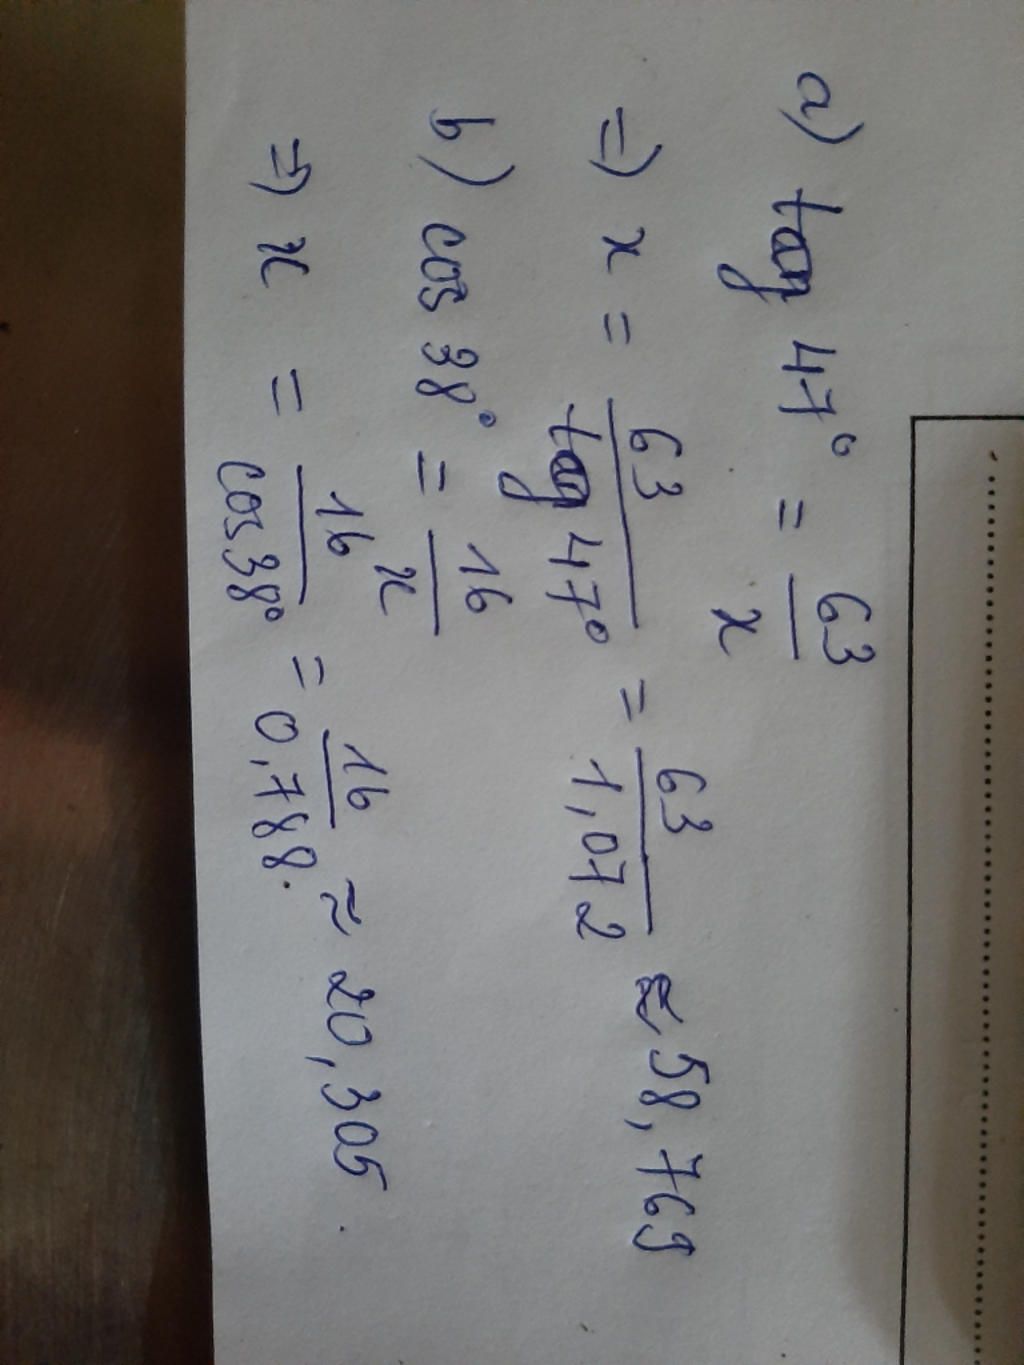 a) tag 47° = 63/x
=> x = 63/tag 47° = 63/1,072 ≈ 58,769
b) cos 38° = 16/x
=> x = 16/cos 38° = 16/0,788. ≈ 20,305.